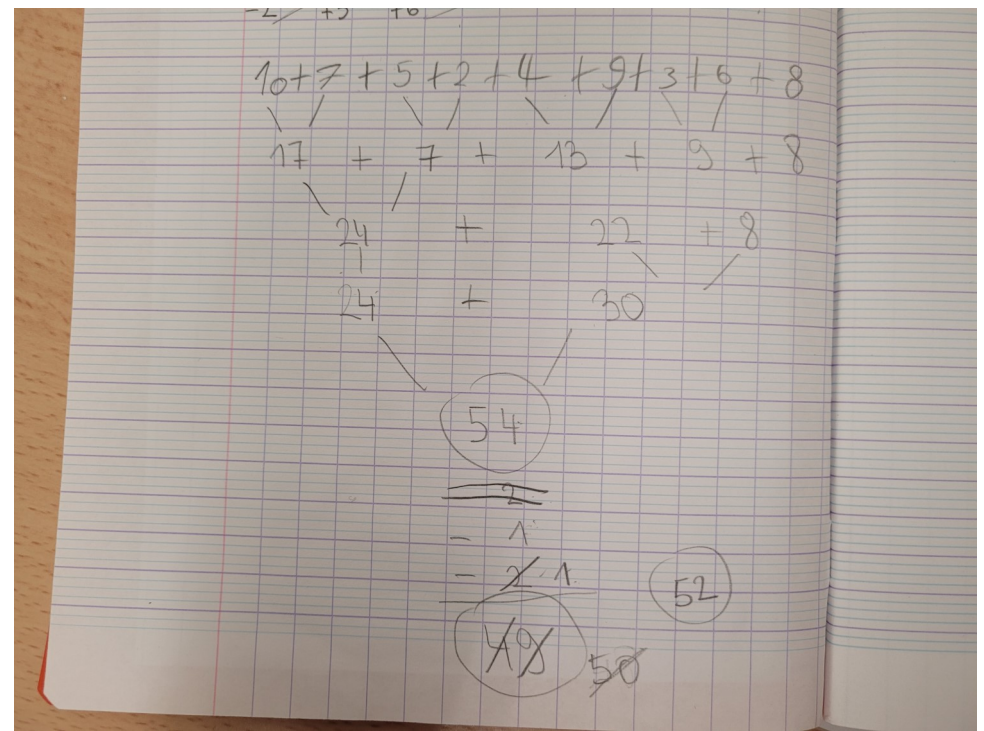 -2 +5 +6
10+7 + 5 +2 + 4 + 9+ 3 + 6 + 8
17 + 7 + 13 + 9 + 8
24 + 22 + 8
24 + 30
54
2
- 1
- 2 1
52
49
50